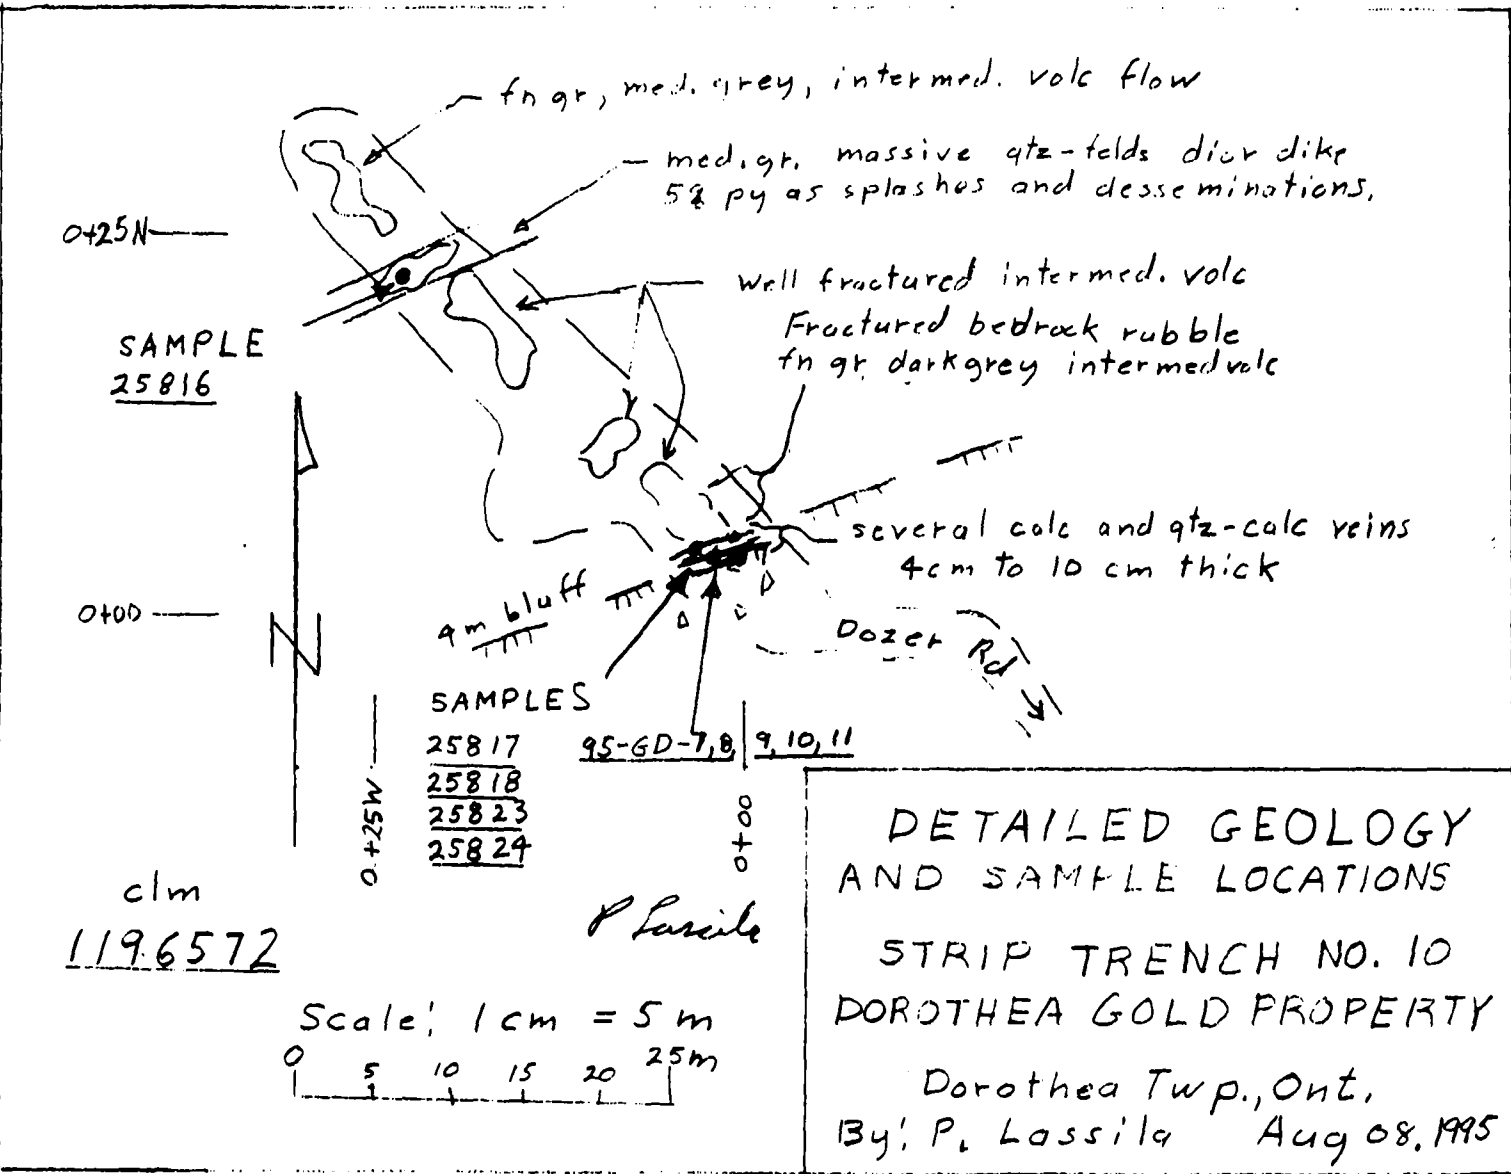 fn gr, med. grey, intermed. volc flow
med. gr. massive qtz-felds dior dike
5% py as splashes and desseminations.
0+25N
Well fractured intermed. volc
Fractured bedrock rubble
fn gr. dark grey intermed volc
SAMPLE
25816
several calc and qtz-calc veins
4cm to 10 cm thick
4m bluff
0+00
Dozer Rd
N
SAMPLES
25817
25818
25823
25824
95-GD-7,8, 9, 10, 11
0+25W
0+00
clm
1196572
P Lassila
Scale: 1cm = 5 m
0 5 10 15 20 25m
DETAILED GEOLOGY
AND SAMPLE LOCATIONS
STRIP TRENCH NO. 10
DOROTHEA GOLD PROPERTY
Dorothea Twp., Ont.
By: P. Lassila Aug 08, 1995